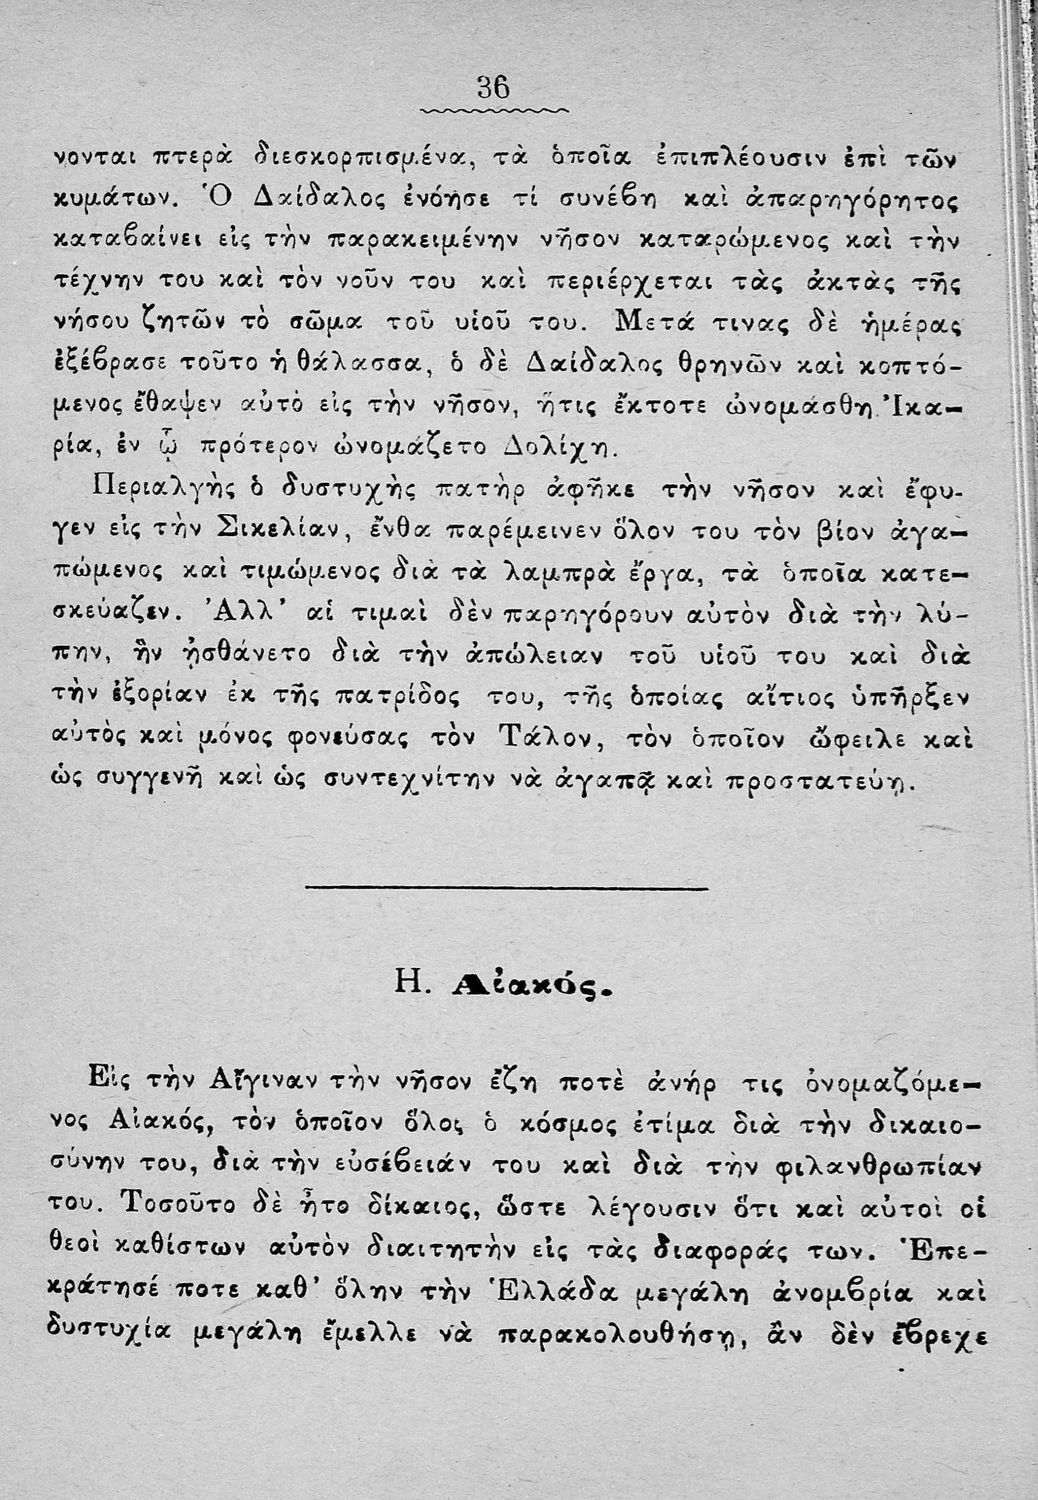 36
νονται πτερὰ διεσκορπισμένα, τὰ ὁποῖα ἐπιπλέουσιν ἐπὶ τῶν
κυμάτων. Ὁ Δαίδαλος ἐνόησε τί συνέβη καὶ ἀπαρηγόρητος
καταβαίνει εἰς τὴν παρακειμένην νῆσον καταρώμενος καὶ τὴν
τέχνην του καὶ τὸν νοῦν του καὶ περιέρχεται τὰς ἀκτὰς τῆς
νήσου ζητῶν τὸ σῶμα τοῦ υἱοῦ του. Μετά τινας δὲ ἡμέρας
ἐξέβρασε τοῦτο ἡ θάλασσα, ὁ δὲ Δαίδαλος θρηνῶν καὶ κοπτό-
μενος ἔθαψεν αὐτὸ εἰς τὴν νῆσον, ἥτις ἔκτοτε ὠνομάσθη Ἰκα-
ρία, ἐν ᾧ πρότερον ὠνομάζετο Δολίχη.
Περιαλγὴς ὁ δυστυχὴς πατὴρ ἀφῆκε τὴν νῆσον καὶ ἔφυ-
γεν εἰς τὴν Σικελίαν, ἔνθα παρέμεινεν ὅλον του τὸν βίον ἀγα-
πώμενος καὶ τιμώμενος διὰ τὰ λαμπρὰ ἔργα, τὰ ὁποῖα κατε-
σκεύαζεν. Ἀλλ’ αἱ τιμαὶ δὲν παρηγόρουν αὐτὸν διὰ τὴν λύ-
πην, ἣν ᾐσθάνετο διὰ τὴν ἀπώλειαν τοῦ υἱοῦ του καὶ διὰ
τὴν ἐξορίαν ἐκ τῆς πατρίδος του, τῆς ὁποίας αἴτιος ὑπῆρξεν
αὐτὸς καὶ μόνος φονεύσας τὸν Τάλον, τὸν ὁποῖον ὤφειλε καὶ
ὡς συγγενῆ καὶ ὡς συντεχνίτην νὰ ἀγαπᾷ καὶ προστατεύῃ.
Η. Αἰακός.
Εἰς τὴν Αἴγιναν τὴν νῆσον ἔζη ποτὲ ἀνήρ τις ὀνομαζόμε-
νος Αἰακός, τὸν ὁποῖον ὅλος ὁ κόσμος ἐτίμα διὰ τὴν δικαιο-
σύνην του, διὰ τὴν εὐσέβειάν του καὶ διὰ τὴν φιλανθρωπίαν
του. Τοσοῦτο δὲ ἦτο δίκαιος, ὥστε λέγουσιν ὅτι καὶ αὐτοὶ οἱ
θεοὶ καθίστων αὐτὸν διαιτητὴν εἰς τὰς διαφοράς των. Ἐπε-
κράτησέ ποτε καθ’ ὅλην τὴν Ἑλλάδα μεγάλη ἀνομβρία καὶ
δυστυχία μεγάλη ἔμελλε νὰ παρακολουθήσῃ, ἂν δὲν ἔβρεχε